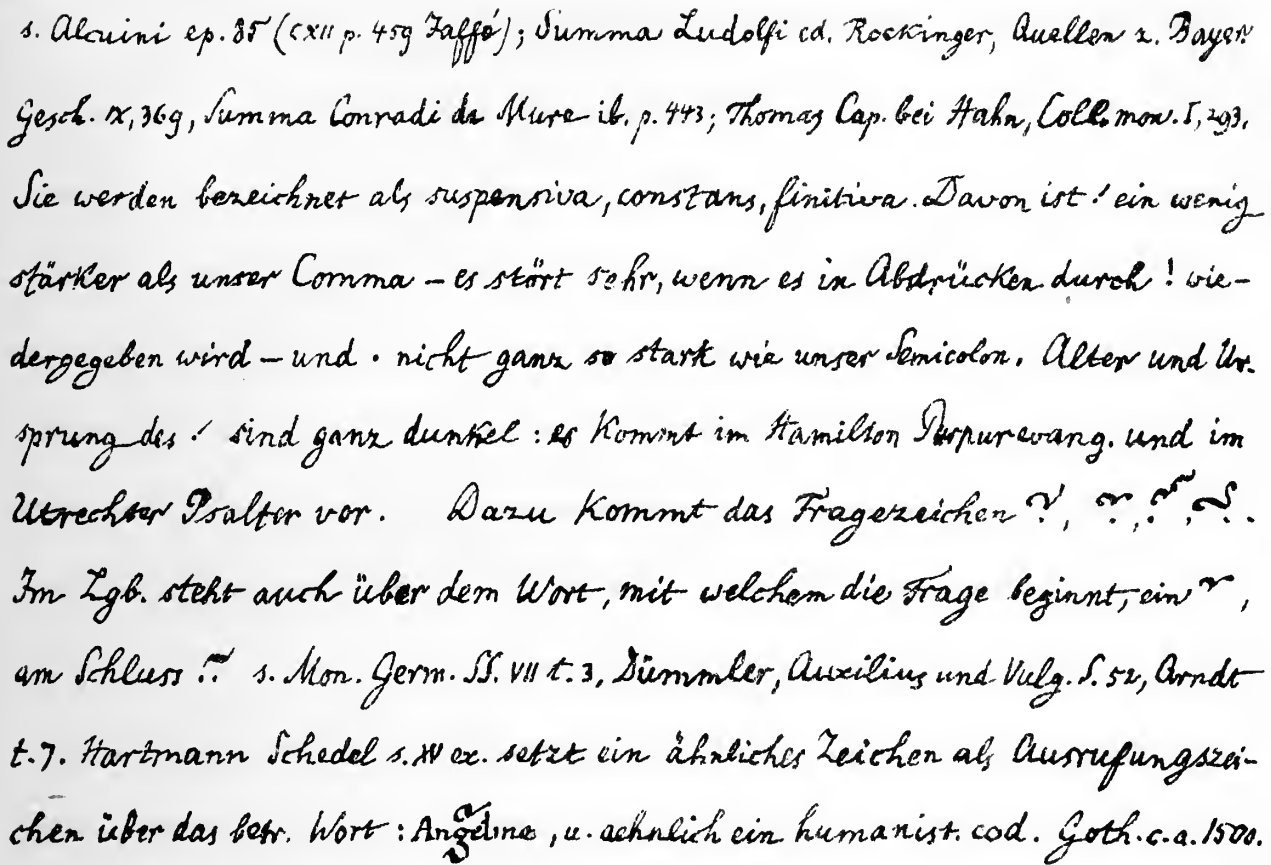 s. Alcuini ep. 85 (CXII p. 459 Jaffé); Summa Ludolfi ed. Rockinger, Quellen z. Bayer.
Gesch. IX, 369, Summa Conradi de Mure ib. p. 443; Thomas Cap. bei Hahn, Coll. mon. I, 293.
Sie werden bezeichnet als suspensiva, constans, finitiva. Davon ist ! ein wenig
stärker als unser Comma – es stört sehr, wenn es in Abdrücken durch ! wie-
dergegeben wird – und · nicht ganz so stark wie unser Semicolon. Alter und Ur-
sprung des ! sind ganz dunkel: es kommt im Hamilton Purpurevang. und im
Utrechter Psalter vor. Dazu kommt das Fragezeichen
Im Lgb. steht auch über dem Wort, mit welchem die Frage beginnt, ein ,
am Schluss s. Mon. Germ. SS. VII t. 3, Dümmler, Auxilius und Vulg. S. 52, Arndt
t. 7. Hartmann Schedel s. XV ex. setzt ein ähnliches Zeichen als Ausrufungszei-
chen über das betr. Wort: , u. aehnlich ein humanist. cod. Goth. c. a. 1500.